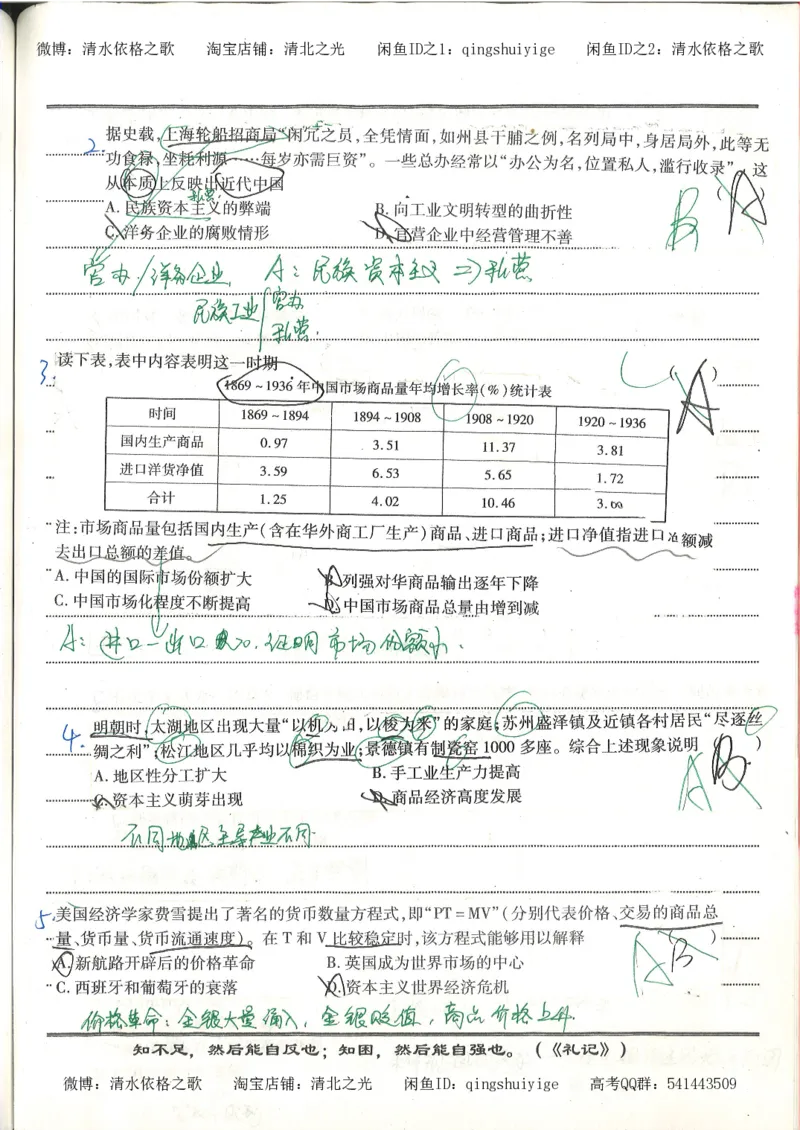 微博：清水依格之歌 淘宝店铺：清北之光 闲鱼ID之1：qingshuiyige 闲鱼ID之2：清水依格之歌
2. 据史载，上海轮船招商局“闲冗之员，全凭情面，如州县干脯之例，名列局中，身居局外，此等无
功食禄，坐耗利源……每岁亦需巨资”。一些总办经常以“办公为名，位置私人，滥行收录”。这
从本质上反映出近代中国 ( )
私营
A. 民族资本主义的弊端 B. 向工业文明转型的曲折性
C. 洋务企业的腐败情形 D. 官营企业中经营管理不善
A
B
官办/洋务企业 A：民族资本主义 => 私营
民族工业 官办
私营.
3. 读下表，表中内容表明这一时期 ( )
A
1869～1936年中国市场商品量年均增长率(%)统计表
时间 1869～1894 1894～1908 1908～1920 1920～1936
国内生产商品 0.97 3.51 11.37 3.81
进口洋货净值 3.59 6.53 5.65 1.72
合计 1.25 4.02 10.46 3.60
注：市场商品量包括国内生产(含在华外商工厂生产)商品、进口商品；进口净值指进口总额减
去出口总额的差值。
A. 中国的国际市场份额扩大 B. 列强对华商品输出逐年下降
C. 中国市场化程度不断提高 D. 中国市场商品总量由增到减
A：进口一出口 >0. 证明市场份额小.
4. 明朝时，太湖地区出现大量“以机为田，以梭为耒”的家庭；苏州盛泽镇及近镇各村居民“尽逐丝
绸之利”；松江地区几乎均以棉织为业；景德镇有制瓷窑1000多座。综合上述现象说明 ( )
A. 地区性分工扩大 B. 手工业生产力提高
C. 资本主义萌芽出现 D. 商品经济高度发展
B
A
不同地区主导产业不同
5. 美国经济学家费雪提出了著名的货币数量方程式，即“PT=MV”(分别代表价格、交易的商品总
量、货币量、货币流通速度)。在T和V比较稳定时，该方程式能够用以解释 ( )
A. 新航路开辟后的价格革命 B. 英国成为世界市场的中心
C. 西班牙和葡萄牙的衰落 D. 资本主义世界经济危机
A
B
价格革命：金银大量涌入，金银贬值，商品价格上升.
知不足，然后能自反也；知困，然后能自强也。（《礼记》）
微博：清水依格之歌 淘宝店铺：清北之光 闲鱼ID：qingshuiyige 高考QQ群：541443509